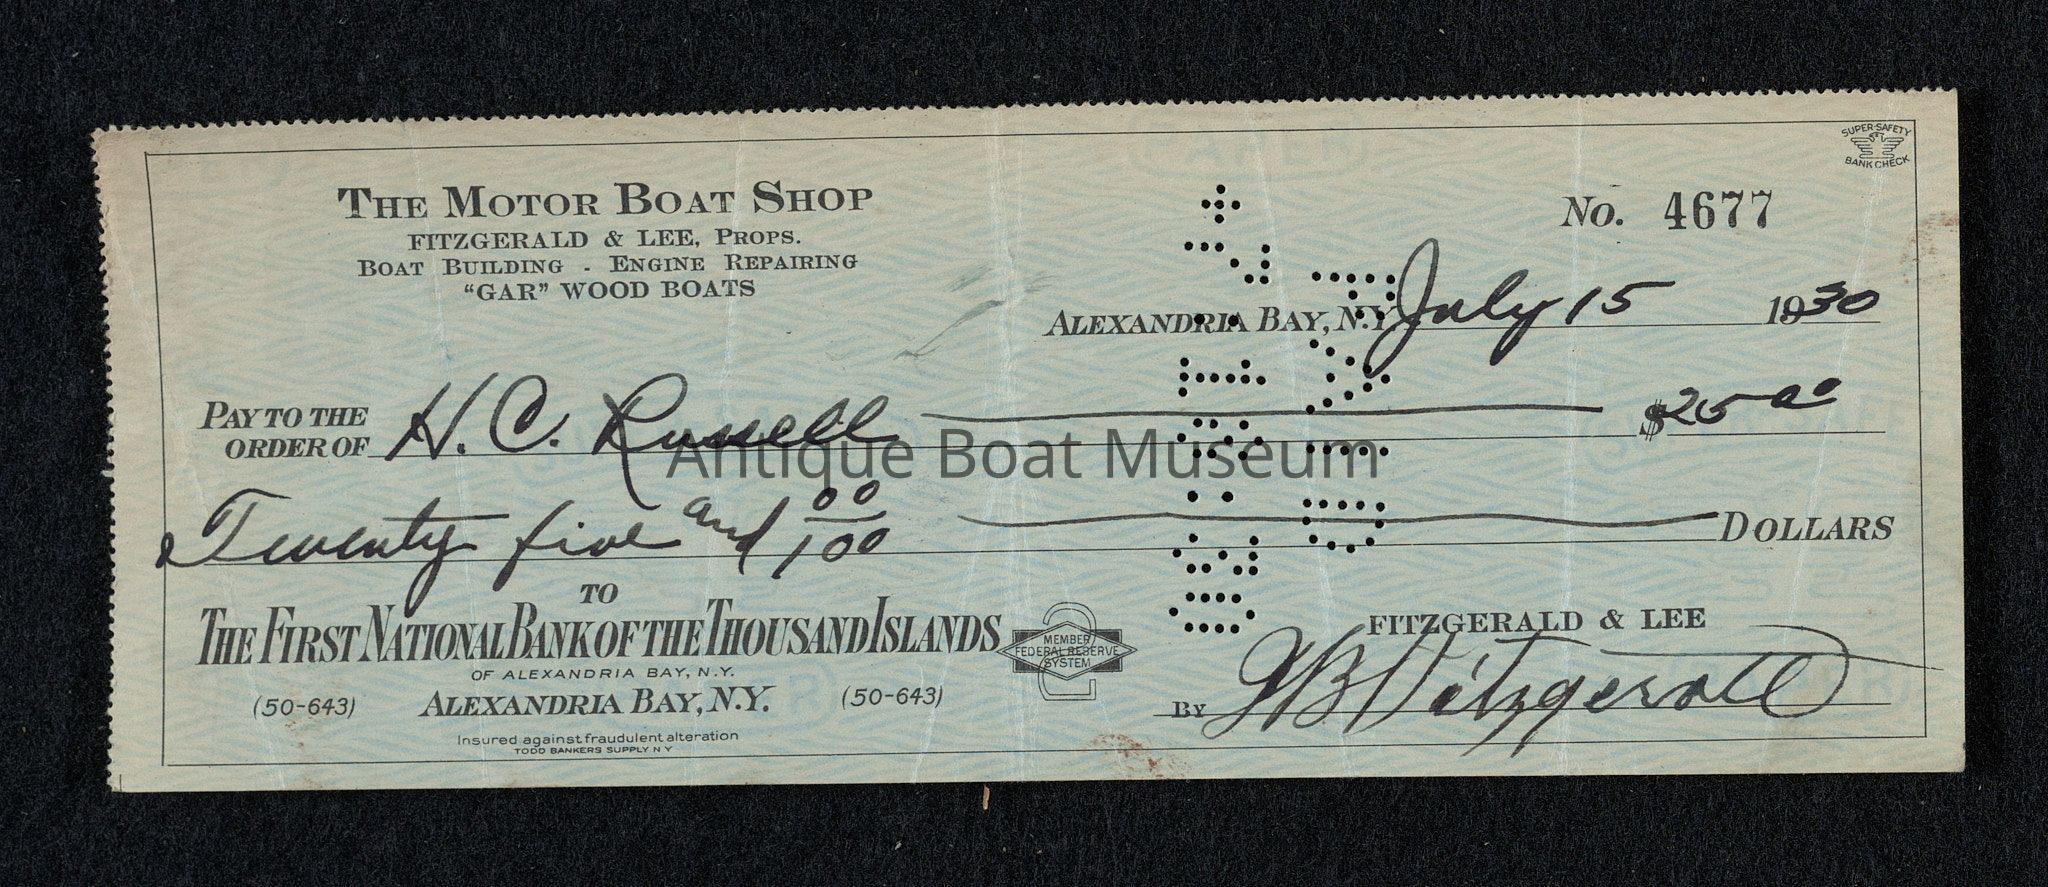 SUPER-SAFETY
BANK CHECK
THE MOTOR BOAT SHOP
FITZGERALD & LEE, PROPS.
BOAT BUILDING - ENGINE REPAIRING
"GAR" WOOD BOATS
No. 4677
ALEXANDRIA BAY, N.Y. July 15 1930
PAY TO THE
ORDER OF H. C. Russell $25.00
Antique Boat Museum
Twenty five and 00/100 DOLLARS
TO
THE FIRST NATIONAL BANK OF THE THOUSAND ISLANDS
OF ALEXANDRIA BAY, N.Y.
(50-643) ALEXANDRIA BAY, N.Y. (50-643)
Insured against fraudulent alteration
TODD BANKERS SUPPLY N Y
MEMBER
FEDERAL RESERVE
SYSTEM
2
FITZGERALD & LEE
BY Fitzgerald